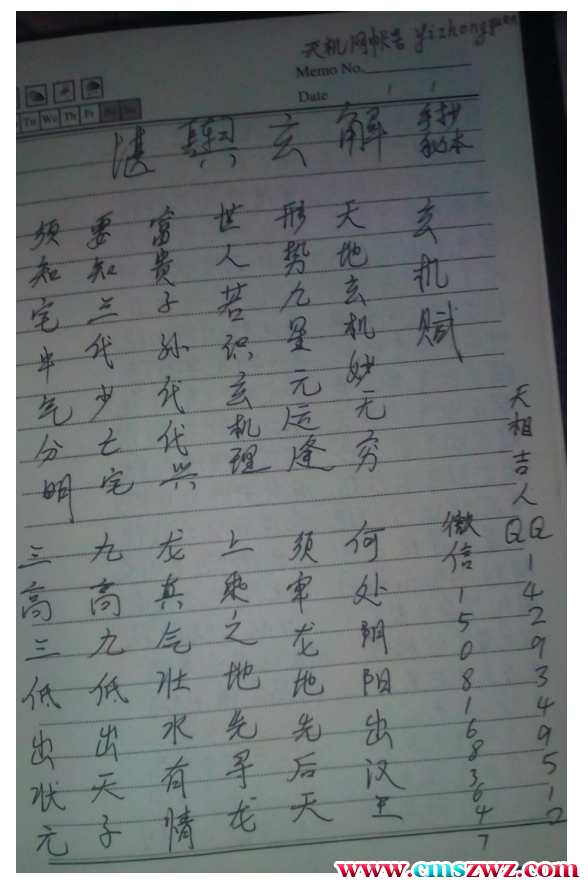 天机网帐号 yizhongyuan
Memo No.
Date / /
Tu We Th Fr
湛舆玄解
手抄
本
玄机赋
天地玄机妙无穷
形势九星元运逢
世人若识玄机理
富贵子孙代代兴
要知三代少亡宅
须知宅气分明
天相吉人
QQ 1429349512
微信 15081683647
何处阴阳出汉王
须审龙地先后天
上乘之地先寻龙
龙真气壮水有情
九高九低出天子
三高三低出状元
www.cmszwz.com